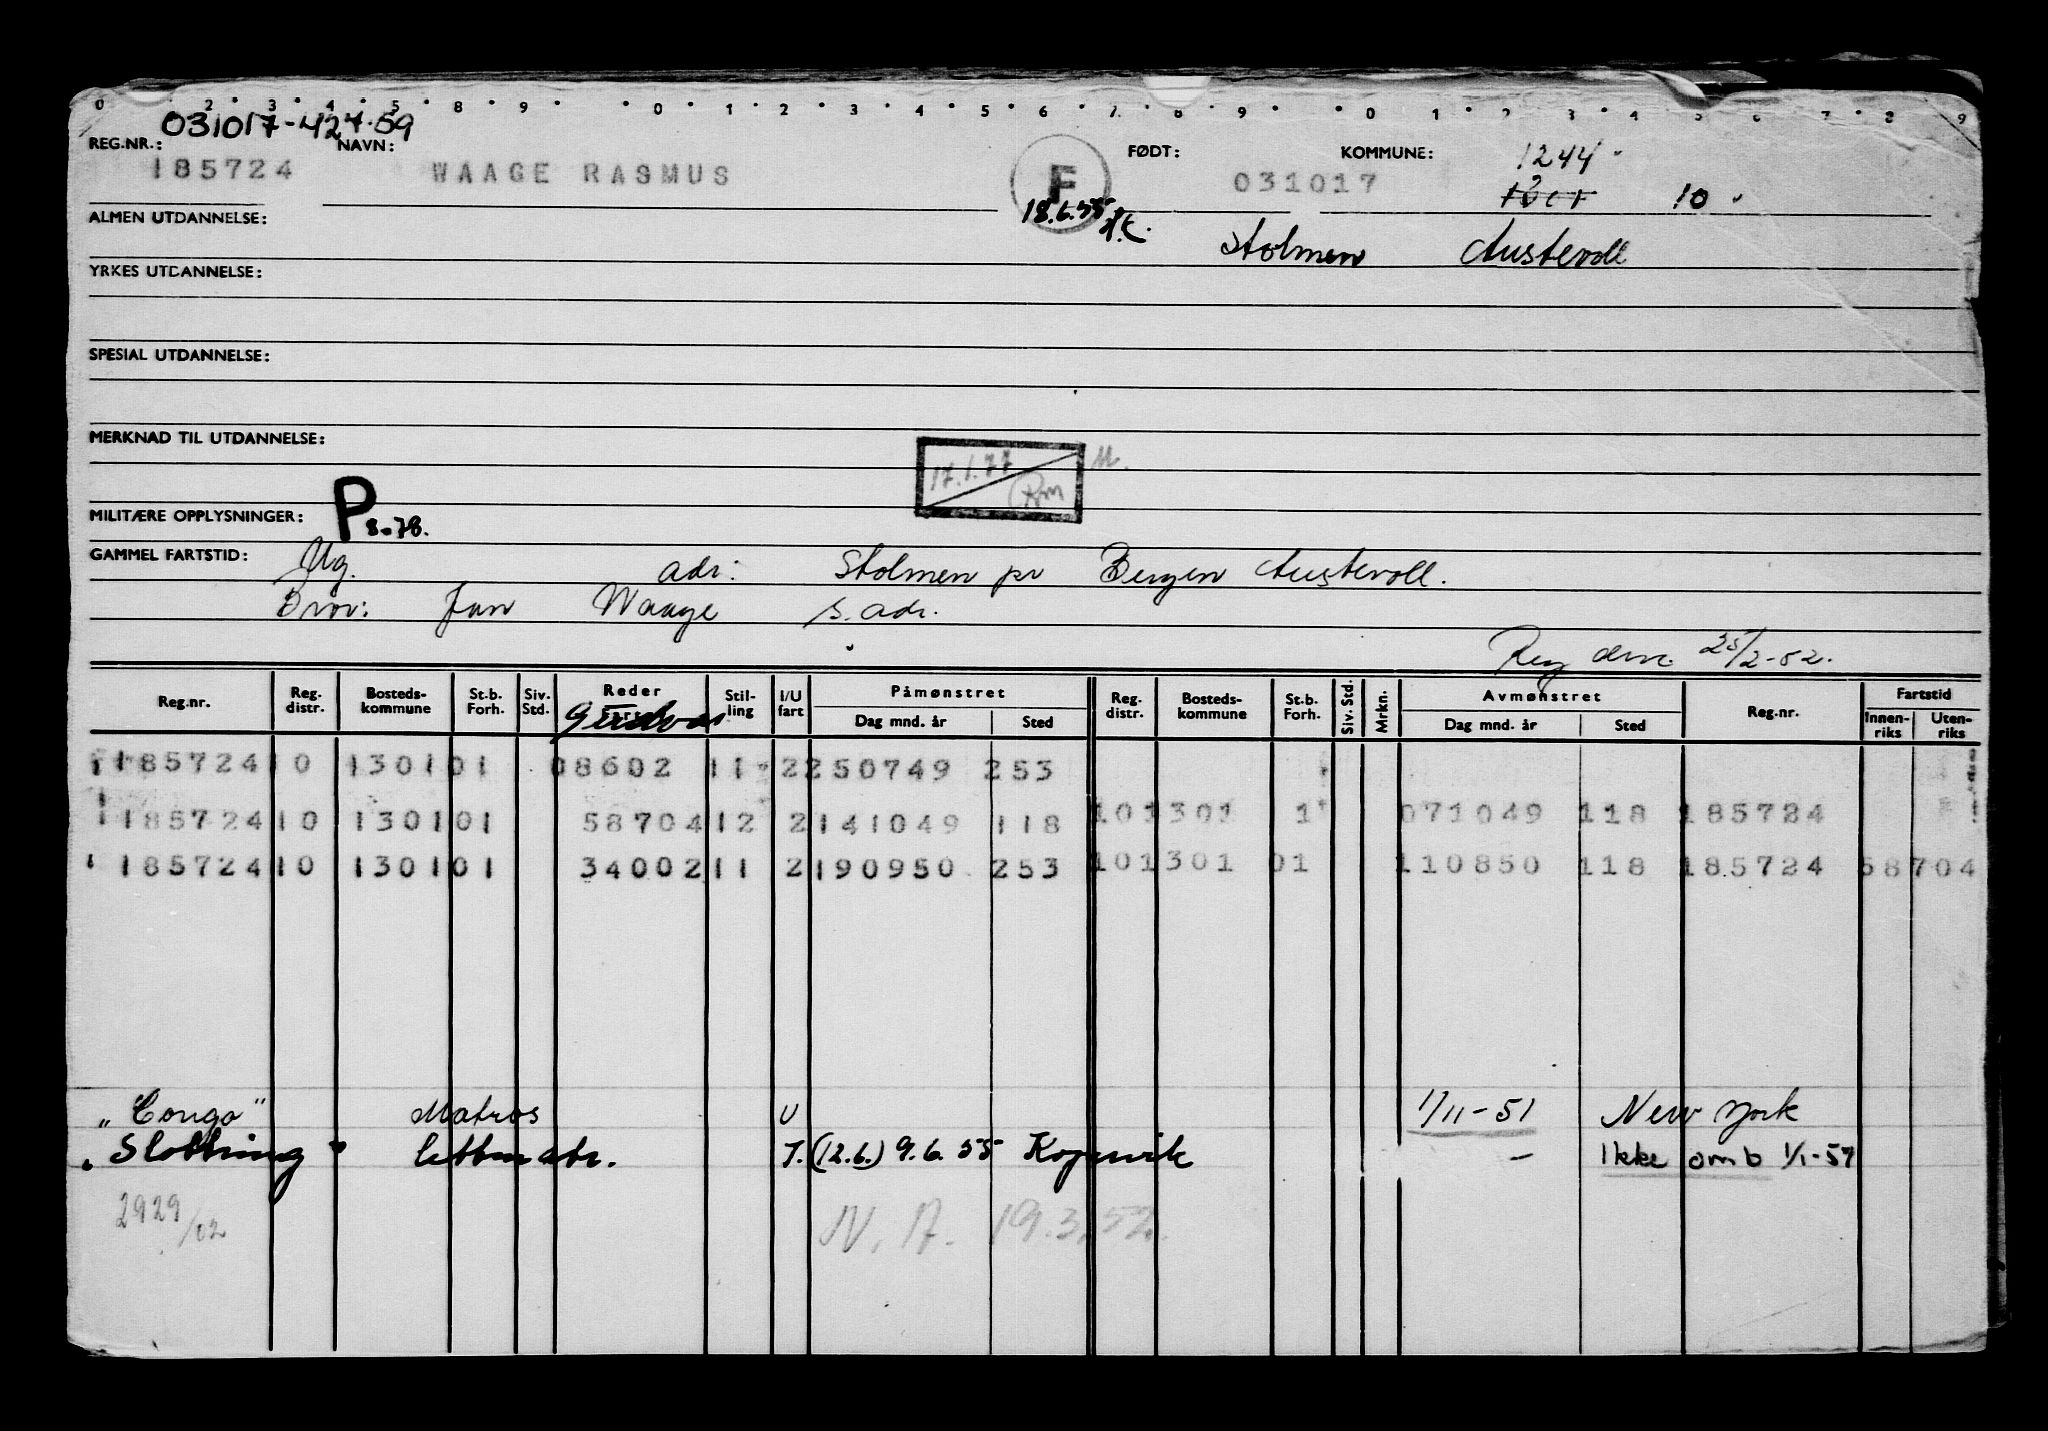 0 2 3 4 5 8 9 0 1 2 3 4 5 6 7 8 9 0 1 2 3 4 5 6 7 8 9
031017-424.59
REG.NR.: NAVN: FØDT: KOMMUNE: 1244
185724 WAAGE RASMUS F 031017 10
18.6.55
ALMEN UTDANNELSE: Stolmen Austevoll
YRKES UTDANNELSE:
SPESIAL UTDANNELSE:
MERKNAD TIL UTDANNELSE:
17.1.77
MILITÆRE OPPLYSNINGER: P 8-78.
GAMMEL FARTSTID: Ug. adr: Stolmen pr Bergen Austevoll.
Bror: Jan Waage s. adr.
Reg 25/2-52.
Reg.nr. Reg. distr. Bosteds-kommune St.b. Forh. Siv. Std. Reder Stil-ling I/U fart Påmønstret Dag mnd. år Sted Reg. distr. Bosteds-kommune St.b. Forh. Siv. Std. Mrkn. Avmønstret Dag mnd. år Sted Reg.nr. Fartstid Innen-riks Uten-riks
185724 10 1301 01 08602 11 2 250749 253
185724 10 1301 01 58704 12 2 141049 118 10 1301 1 071049 118 185724
185724 10 1301 01 34002 11 2 190950 253 10 1301 01 110850 118 185724 58704
"Congo" Matros U 1/11-51 New York
"Slottring" lettmatr. I. (12.6.) 9.6.55 Kopervik — Ikke omb 1/1-57
2929/02 N. A. 19.3.52.